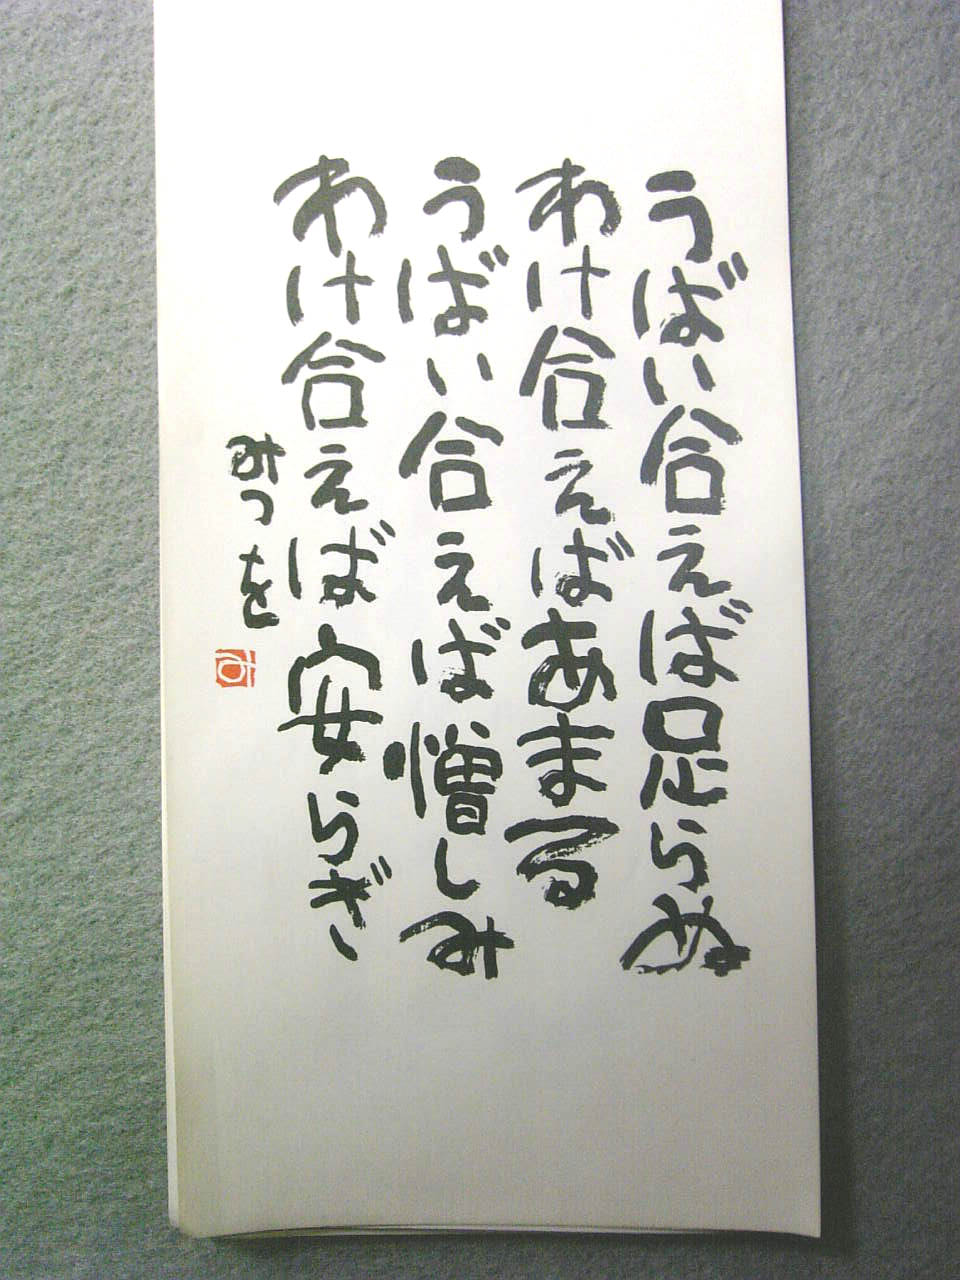 うばい合えば足らぬ
わけ合えばあまる
うばい合えば憎しみ
わけ合えば安らぎ
みつを
み